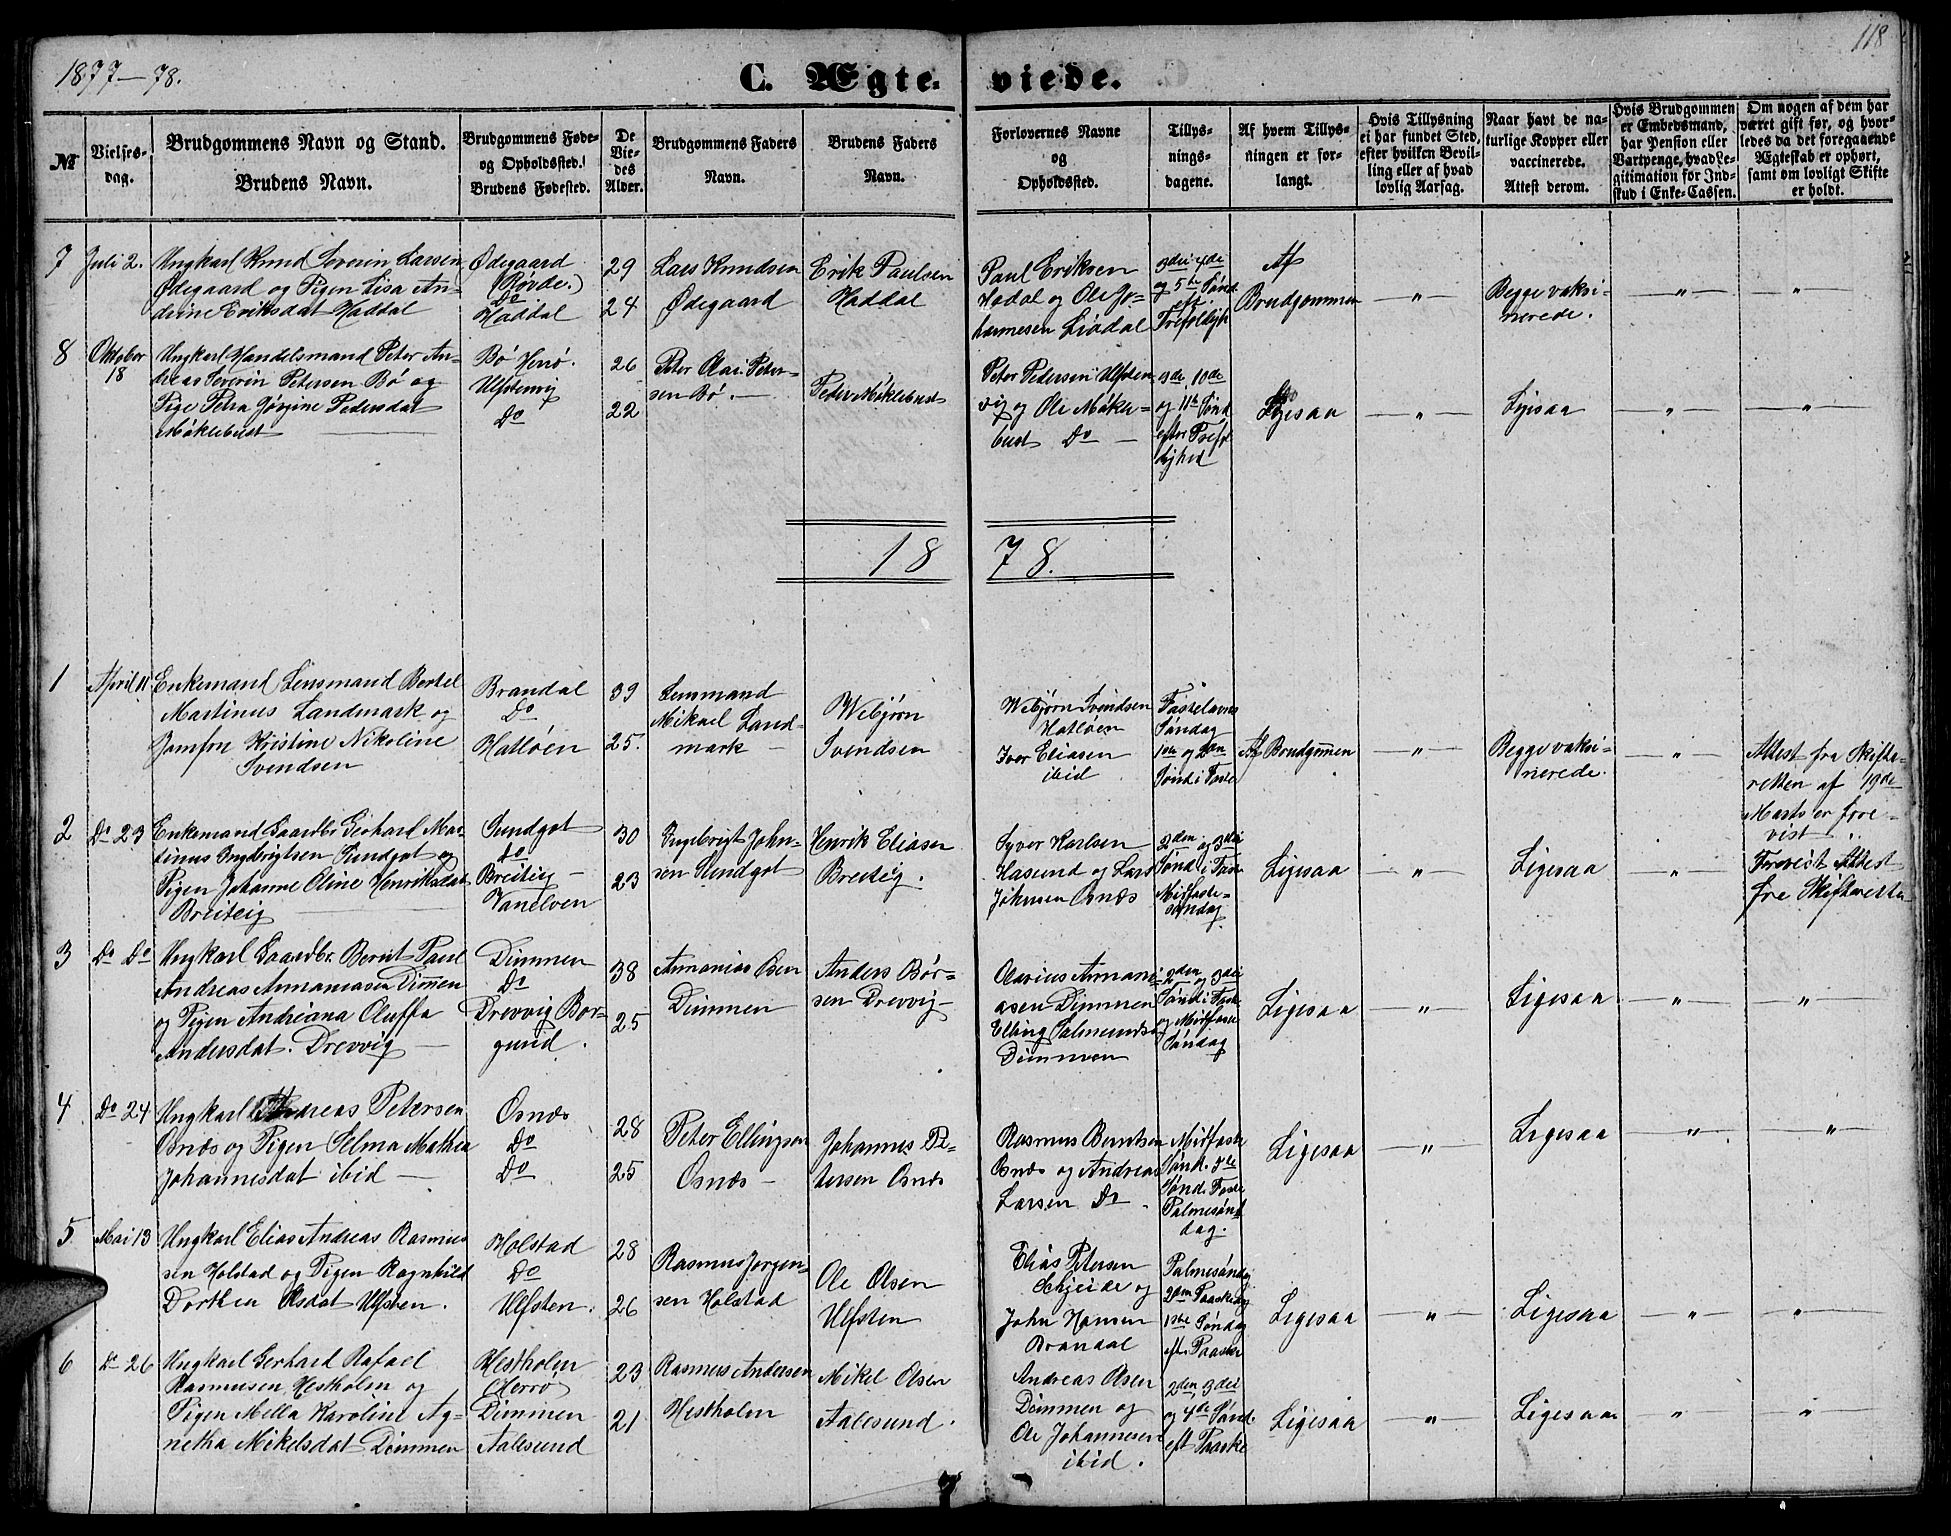 118
1877–78.
C. Ægte-viede.
№
Vielses-dag.
Brudgommens Navn og Stand.
Brudens Navn.
Brudgommens Føde-
og Opholdssted.
Brudens Fødested.
De
Vie-
des
Alder.
Brudgommens Faders
Navn.
Brudens Faders
Navn.
Forlovernes Navne
og
Opholdssted.
Tillys-
nings-
dagene.
Af hvem Tillys-
ningen er for-
langt.
Hvis Tillysning
ei har fundet Sted,
efter hvilken Bevil-
ling eller af hvad
lovlig Aarsag.
Naar havt de na-
turlige Kopper eller
vaccinerede.
Attest derom.
Hvis Brudgommen
er Embedsmand,
har Pension eller
Vartpenge, hvad Le-
gitimation for Ind-
skud i Enke-Cassen.
Om nogen af dem har
været gift før, og hvor-
ledes da det foregaaende
Ægteskab er ophørt,
samt om lovligt Skifte
er holdt.
7
Juli 2.
Ungkarl Knud Severin Larsen
Ødegaard og Pigen Lisa An-
drine Eriksdat Haddal
Ødegaard
(Røvde.)
Do
Haddal
29
24
Lars Knudsen
Ødegaard
Erik Paulsen
Haddal
Paul Eriksen
Hadal og Ole Jo-
hannesen Liadal
3die 4de
og 5te Sønd
eft.
Trefoldigh
Af
Brudgommen
— " —
Begge vaksi-
nerede.
— " —
— " —
8
Oktober
18
Ungkarl Handelsmand Peter An-
dreas Severin Petersen Bö og
Pige Petra Jørgine Pedersdat
Möklebust
Bö Herrö.
Ulfstenvig
Do
26
22
Peter Olai Peter-
sen Bö. —
Peder Möklebust
Peter Petersen Ulfsten
vig og Ole Mökle-
bust Do —
9de, 10de
og 11te Sønd
efter Trefol
dighed
Ligesaa
— " —
Ligesaa
— " —
— " —
18 78.
1
April 11
Enkemand Lensmand Bertel
Martinus Landmark og
Jomfru Kristine Nikoline
Svendsen
Brandal
Do
Hatlöen
39
25.
Lensmand
Mikael Land-
mark —
Webjørn
Svendsen
Webjørn Svendsen
Hatlöen
Iver Eliasen
ibid
Fastelavns
Søndag
1ste og 2den
Sønd i Faste
Af Brudgommen
— " —
Begge vaksi-
nerede.
"
Attest fra Skifte-
retten af 19de
Marts er fore-
vist
2
Do 23
Enkemand Gaardbr Gerhard Mar-
tinus Ingebrigtsen Sundgot og
Pigen Johanne Oline Henriksdat
Breiteig
Sundgot
do
Breiteig —
Vanelven
30
23
Ingebrigt John-
sen Sundgot
Henrik Eliasen
Breiteig.
Syver Karlsen
Hasund og Lars
Johnsen Osnæs
2den og 3die
Sønd. i Faste
Midfaste-
søndag
Ligesaa
— " —
Ligesaa
— " —
Forevist Attest
fra Skifteretten
3
Do Do
Ungkarl Gaardbr. Bernt Paul
Andreas Annaniasen Dimmen
og Pigen Andriana Oluffa
Andersdat. Drevvig —
Dimmen
Do
Drevvig Bor-
gund.
38
25
Annanias Osen
Dimmen
Anders Bør-
sen Drevvig
Olarius Annani-
asen Dimmen
Elling Salmundsen
Dimmen
2den og 3die
Sønd i Faste
og Midfaste
Søndag
Ligesaa
— " —
Ligesaa
— " —
— " —
4
Do 24
Ungkarl Andreas Petersen
Osnæs og Pigen Selma Mathea
Johannesdat ibid —
Osnæs
Do
Do
28
25
Peter Ellingsen
Osnæs —
Johannes Pe-
tersen Osnæs
Rasmus Berntsen
Osnæs og Andreas
Larsen Do
Midfaste
Sønd. 5te
Sønd. Faste
Palmesøn
dag.
Ligesaa
— " —
Ligesaa
— " —
— " —
5
Mai 13
Ungkarl Elias Andreas Rasmus
sen Holstad og Pigen Ragnhild
Dorthea Olsdat Ulfsten.
Holstad
Do
Ulfsten.
28
26
Rasmus Jørgen-
sen Holstad
Ole Olsen
Ulfsten
Elias Petersen
Schjeide og
John Hansen
Brandal
Palmesøndag
2den Paaskedag
1ste Søndag
eft. Paaske
Ligesaa
— " —
Ligesaa
— " —
— " —
6
Do 26
Ungkarl Gerhard Rafael
Rasmusen Hestholm og
Pigen Mella Karoline Ag-
netha Mikelsdat Dimmen
Hestholm
(Herrø)
Dimmen
Aalesund
23
21
Rasmus Andersen
Hestholm
Mikel Olsen
Aalesund.
Andreas Osen
Dimmen og
Ole Johannesen
ibid.
2den, 3die
og 4de Sønd.
eft Paaske
Ligesaa
— " —
Ligesaa
— " —
— " —